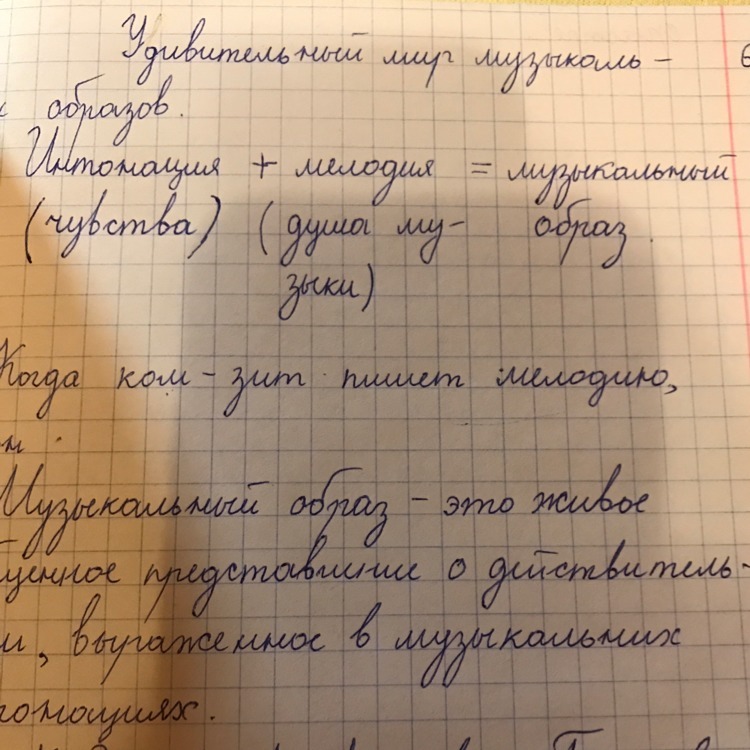 Удивительный мир музыкаль- 6
х образов.
Интонация + мелодия = музыкальный
(чувства) (душа му- образ.
зыки)
Когда ком-зит пишет мелодию,
он.
Музыкальный образ - это живое
щенное представление о действитель-
и, выраженное в музыкальных
тонациях.